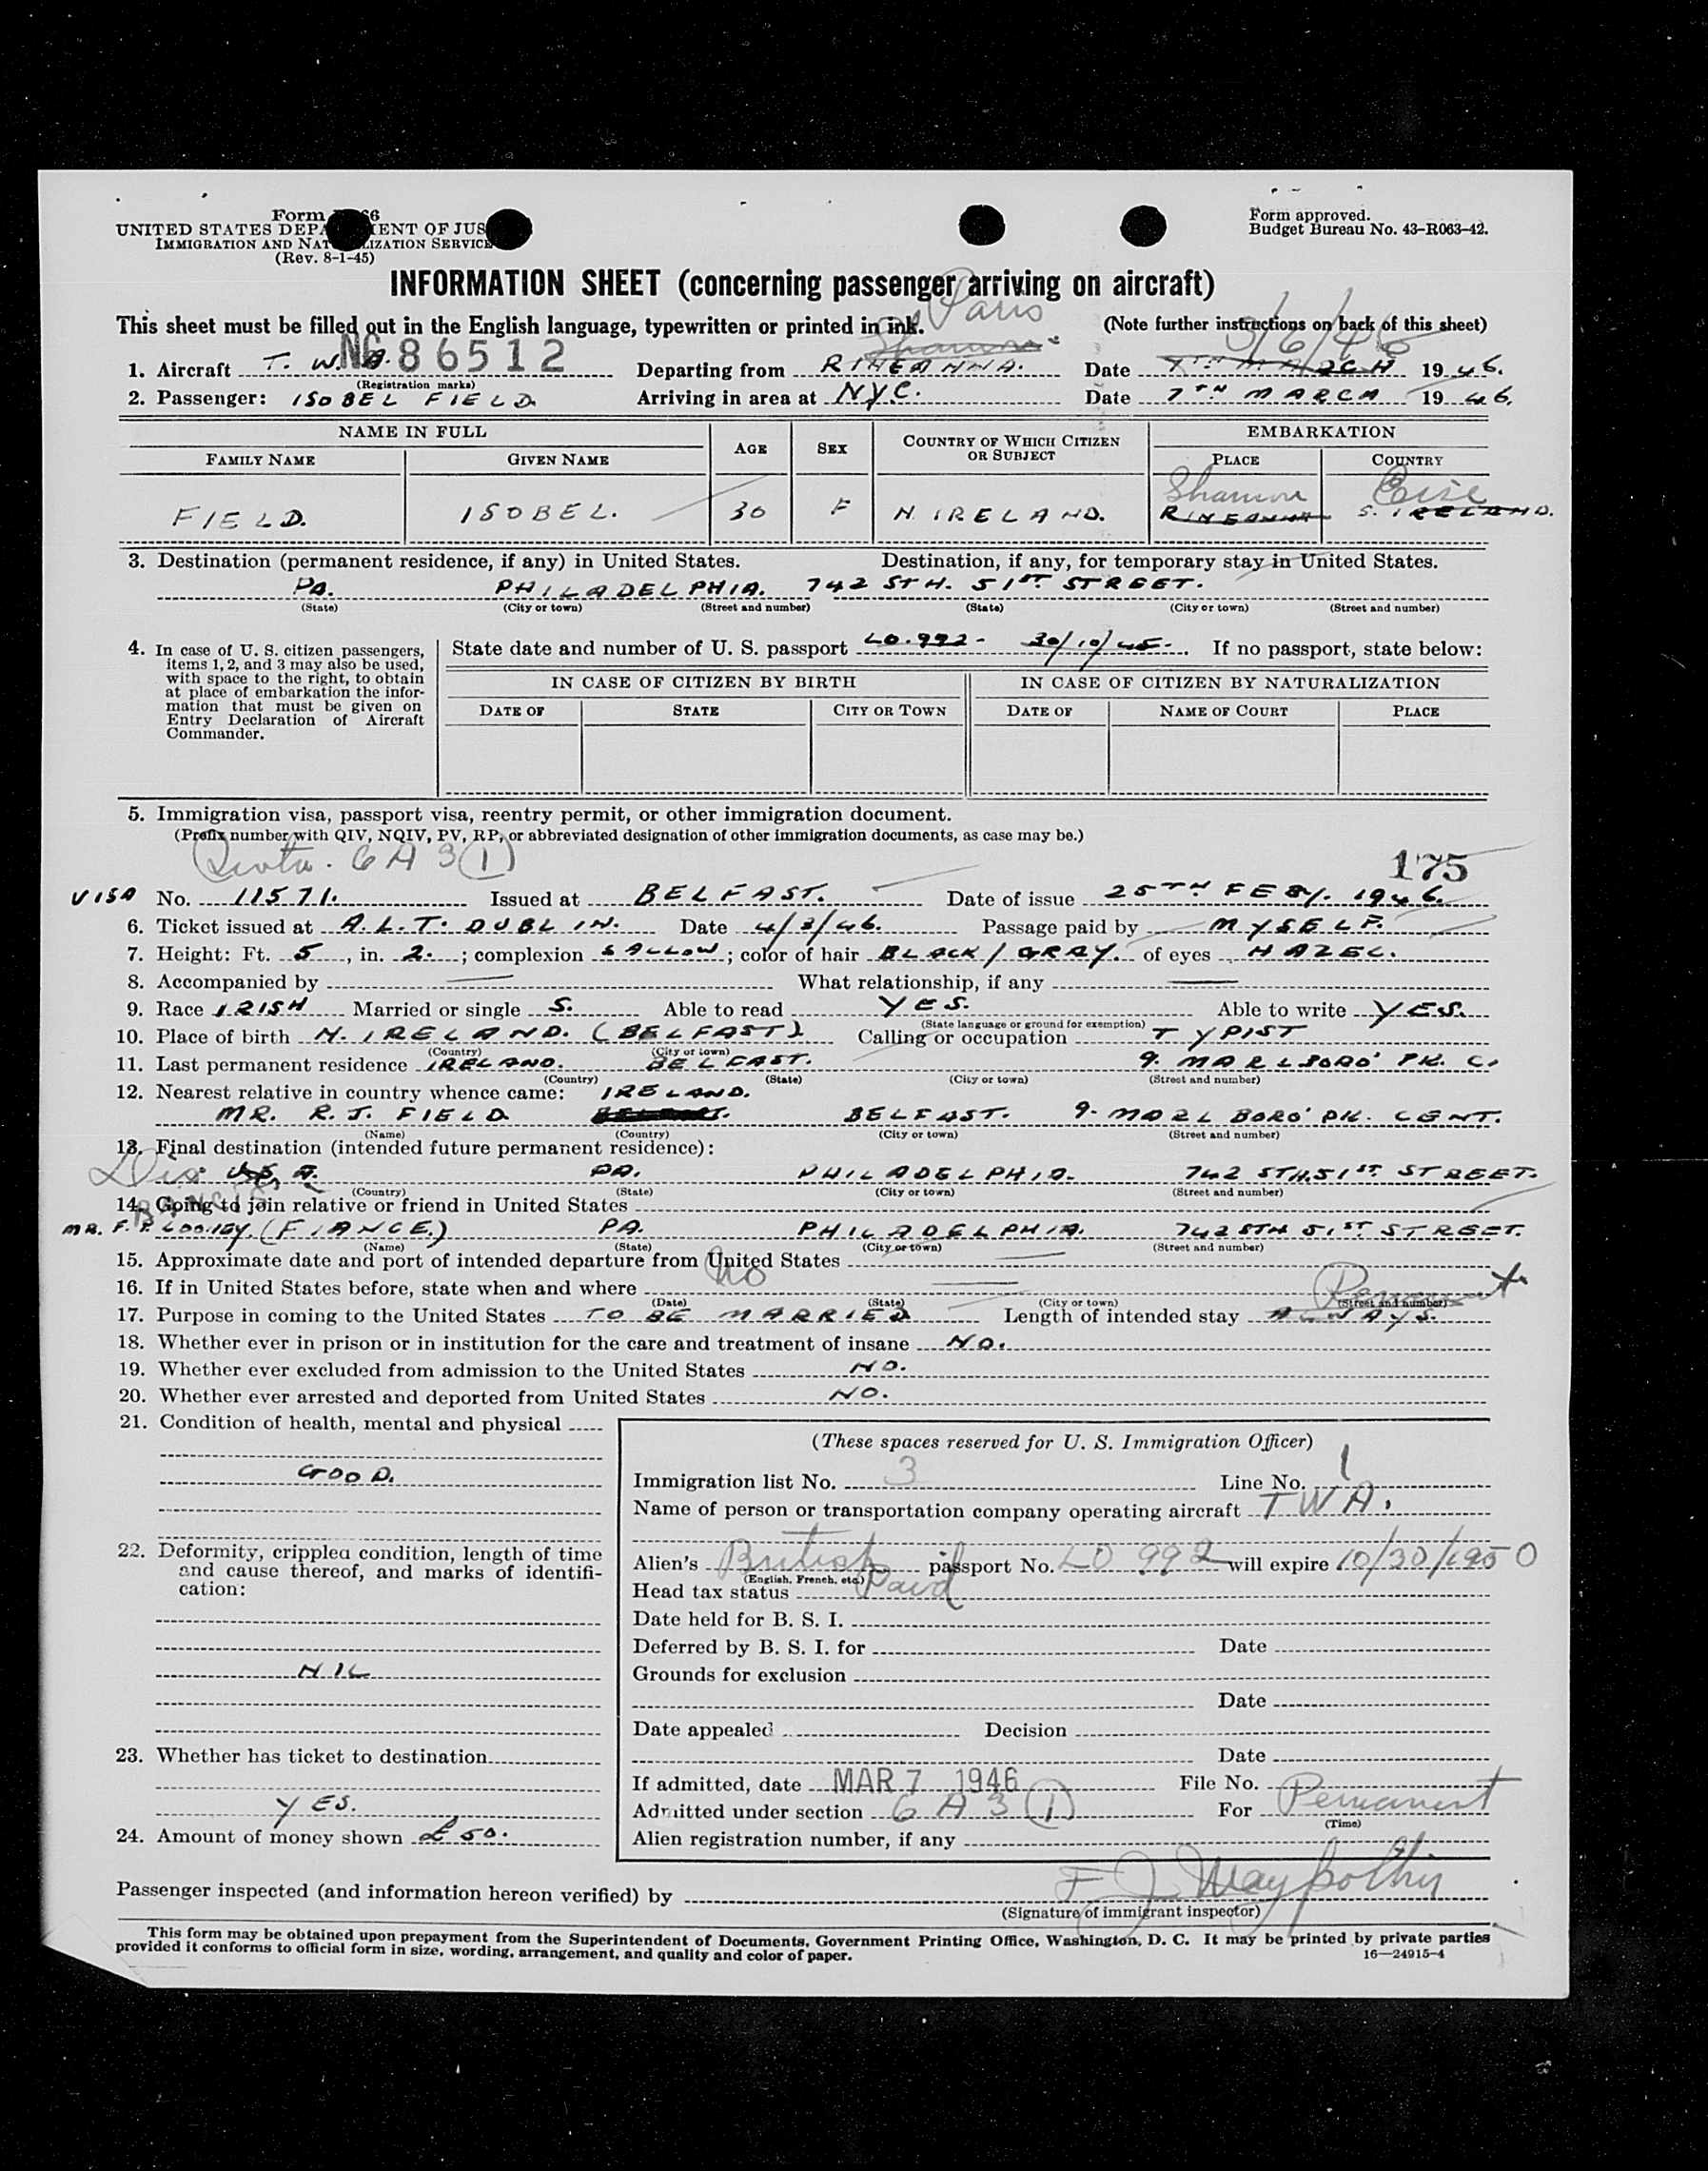 Form 66
UNITED STATES DEPA ENT OF JUS
IMMIGRATION AND NAT LIZATION SERVICE
(Rev. 8-1-45)
Form approved.
Budget Bureau No. 43-R063-42.
INFORMATION SHEET (concerning passenger arriving on aircraft)
Paris
This sheet must be filled out in the English language, typewritten or printed in ink. (Note further instructions on back of this sheet)
Shannon 3/6/46
1. Aircraft T. W. A. NC 86512 Departing from RINEANNA. Date 7TH MARCH 1946.
(Registration marks)
2. Passenger: ISOBEL FIELD Arriving in area at NYC. Date 7TH MARCH 1946.
NAME IN FULL AGE SEX COUNTRY OF WHICH CITIZEN OR SUBJECT EMBARKATION
FAMILY NAME GIVEN NAME PLACE COUNTRY
Shannon Eire
FIELD. ISOBEL. 30 F N. IRELAND. RINEANNA S. IRELAND.
3. Destination (permanent residence, if any) in United States. Destination, if any, for temporary stay in United States.
PA. PHILADELPHIA. 742 STH. 51ST STREET.
(State) (City or town) (Street and number) (State) (City or town) (Street and number)
4. In case of U. S. citizen passengers, items 1, 2, and 3 may also be used, with space to the right, to obtain at place of embarkation the information that must be given on Entry Declaration of Aircraft Commander.
State date and number of U. S. passport LO.992- 30/10/45. If no passport, state below:
IN CASE OF CITIZEN BY BIRTH IN CASE OF CITIZEN BY NATURALIZATION
DATE OF STATE CITY OR TOWN DATE OF NAME OF COURT PLACE
5. Immigration visa, passport visa, reentry permit, or other immigration document.
(Prefix number with QIV, NQIV, PV, RP, or abbreviated designation of other immigration documents, as case may be.)
Quota. 6 A 3 (1) 175
VISA No. 11571. Issued at BELFAST. Date of issue 25TH FEBY. 1946.
6. Ticket issued at A.L.T. DUBLIN. Date 4/3/46. Passage paid by MYSELF.
7. Height: Ft. 5, in. 2.; complexion SALLOW; color of hair BLACK/GRAY. of eyes HAZEL.
8. Accompanied by — What relationship, if any —
9. Race IRISH Married or single S. Able to read YES. Able to write YES.
(State language or ground for exemption)
10. Place of birth N. IRELAND. (BELFAST) Calling or occupation TYPIST
(Country) (City or town)
11. Last permanent residence IRELAND. BELFAST. 9. MARLBORO' PK. C.
(Country) (State) (City or town) (Street and number)
12. Nearest relative in country whence came: IRELAND.
MR. R. J. FIELD BELFAST. 9. MARLBORO' PK. CENT.
(Name) (Country) (City or town) (Street and number)
13. Final destination (intended future permanent residence):
U.S.A. PA. PHILADELPHIA. 742 STH. 51ST STREET.
(Country) (State) (City or town) (Street and number)
14. Going to join relative or friend in United States
MR. F. P. LOONEY. (FIANCE.) PA. PHILADELPHIA. 742 STH 51ST STREET.
(Name) (State) (City or town) (Street and number)
15. Approximate date and port of intended departure from United States —
16. If in United States before, state when and where No —
(Date) (State) (City or town) (Street and number)
Permanent
17. Purpose in coming to the United States TO BE MARRIED Length of intended stay ALWAYS.
18. Whether ever in prison or in institution for the care and treatment of insane NO.
19. Whether ever excluded from admission to the United States NO.
20. Whether ever arrested and deported from United States NO.
21. Condition of health, mental and physical
GOOD.
22. Deformity, crippled condition, length of time and cause thereof, and marks of identification:
NIL
23. Whether has ticket to destination
YES.
24. Amount of money shown £50.
(These spaces reserved for U. S. Immigration Officer)
Immigration list No. 3 Line No. 1
Name of person or transportation company operating aircraft TWA.
Alien's British passport No. LO 992 will expire 10/30/1950
(English, French, etc.)
Head tax status Paid
Date held for B. S. I.
Deferred by B. S. I. for Date
Grounds for exclusion
Date
Date appealed Decision
Date
If admitted, date MAR 7 1946 File No.
Admitted under section 6 A 3 (1) For Permanent
(Time)
Alien registration number, if any
Passenger inspected (and information hereon verified) by F J
(Signature of immigrant inspector)
This form may be obtained upon prepayment from the Superintendent of Documents, Government Printing Office, Washington, D. C. It may be printed by private parties
provided it conforms to official form in size, wording, arrangement, and quality and color of paper. 16—24915-4